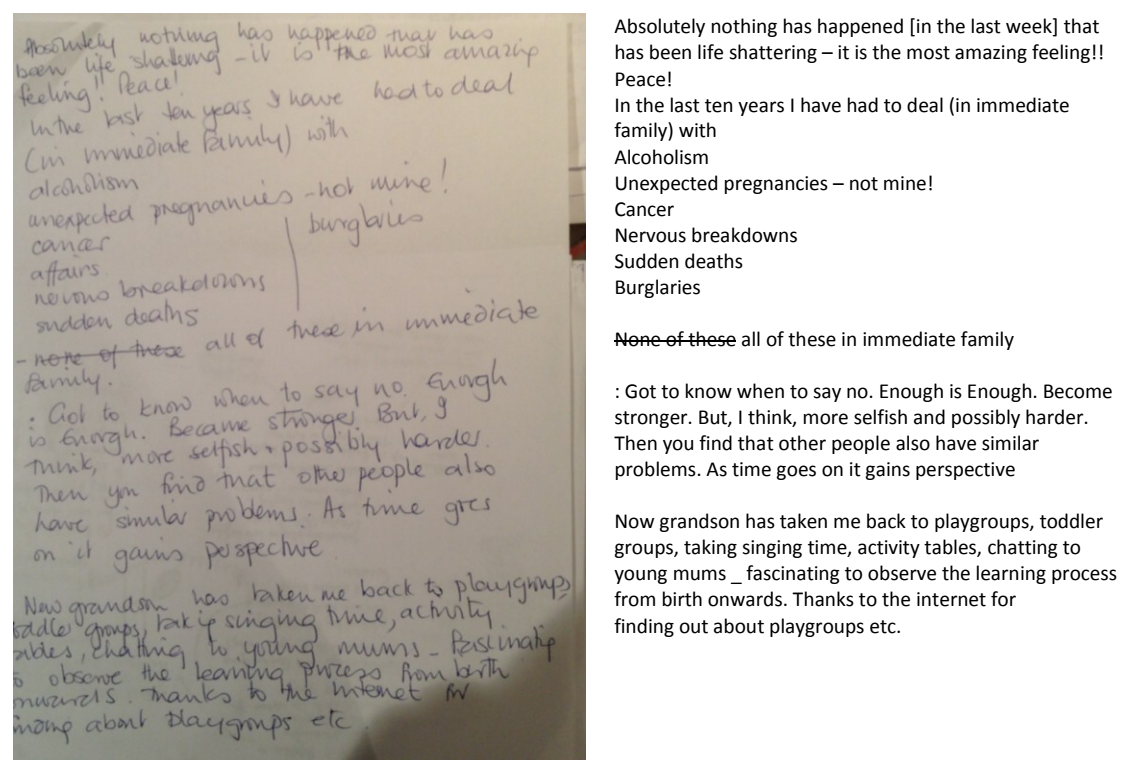 Absolutely nothing has happened that has
been life shattering - it is the most amazing
feeling!! Peace!
In the last ten years I have had to deal
(in immediate family) with
alcoholism
unexpected pregnancies - not mine!
cancer
burglaries
affairs
nervous breakdowns
sudden deaths
- none of these all of these in immediate
family.
: Got to know when to say no. Enough
is Enough. Became stronger. But, I
think, more selfish + possibly harder.
Then you find that other people also
have similar problems. As time goes
on it gains perspective
New grandson has taken me back to playgroups,
oddler groups, takig singing time, activity
ables, chatting to young mums - fascinatig
o observe the learning process from birth
onwards. Thanks to the internet for
inding about playgroups etc.
Absolutely nothing has happened [in the last week] that
has been life shattering – it is the most amazing feeling!!
Peace!
In the last ten years I have had to deal (in immediate
family) with
Alcoholism
Unexpected pregnancies – not mine!
Cancer
Nervous breakdowns
Sudden deaths
Burglaries
None of these all of these in immediate family
: Got to know when to say no. Enough is Enough. Become
stronger. But, I think, more selfish and possibly harder.
Then you find that other people also have similar
problems. As time goes on it gains perspective
Now grandson has taken me back to playgroups, toddler
groups, taking singing time, activity tables, chatting to
young mums _ fascinating to observe the learning process
from birth onwards. Thanks to the internet for
finding out about playgroups etc.